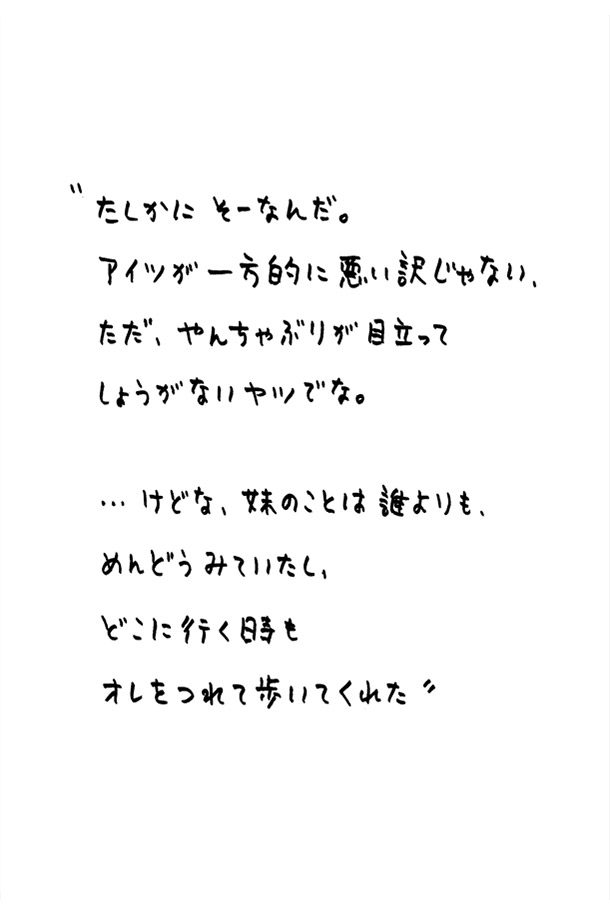 〝たしかに そーなんだ。
アイツが一方的に悪い訳じゃない、
ただ、やんちゃぶりが目立って
しょうがないヤツでな。
…けどな、妹のことは誰よりも、
めんどうみていたし、
どこに行く時も
オレをつれて歩いてくれた〞